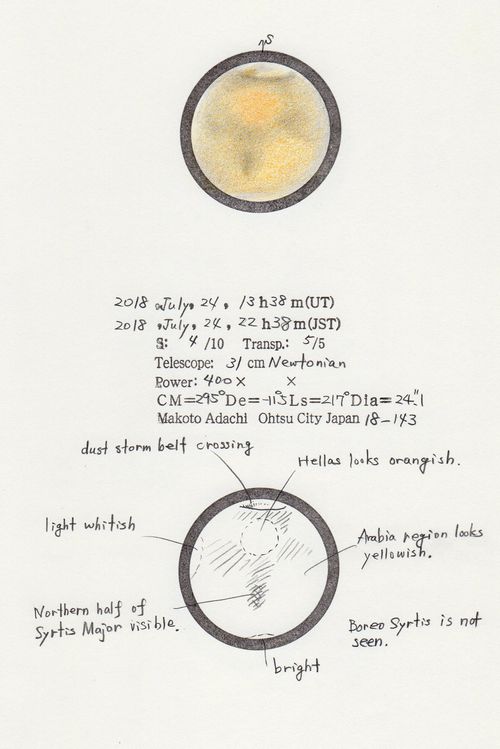 S
2018, July, 24, 13 h 38 m (UT)
2018, July, 24, 22 h 38 m (JST)
S: 4 /10 Transp.: 5/5
Telescope: 31 cm Newtonian
Power: 400 × ×
CM=295° De=-11.5 Ls=217° Dia=24".1
Makoto Adachi Ohtsu City Japan 18-143
dust storm belt crossing
Hellas looks orangish.
light whitish
Arabia region looks
yellowish.
Northern half of
Syrtis Major visible.
Boreo Syrtis is not
seen.
bright